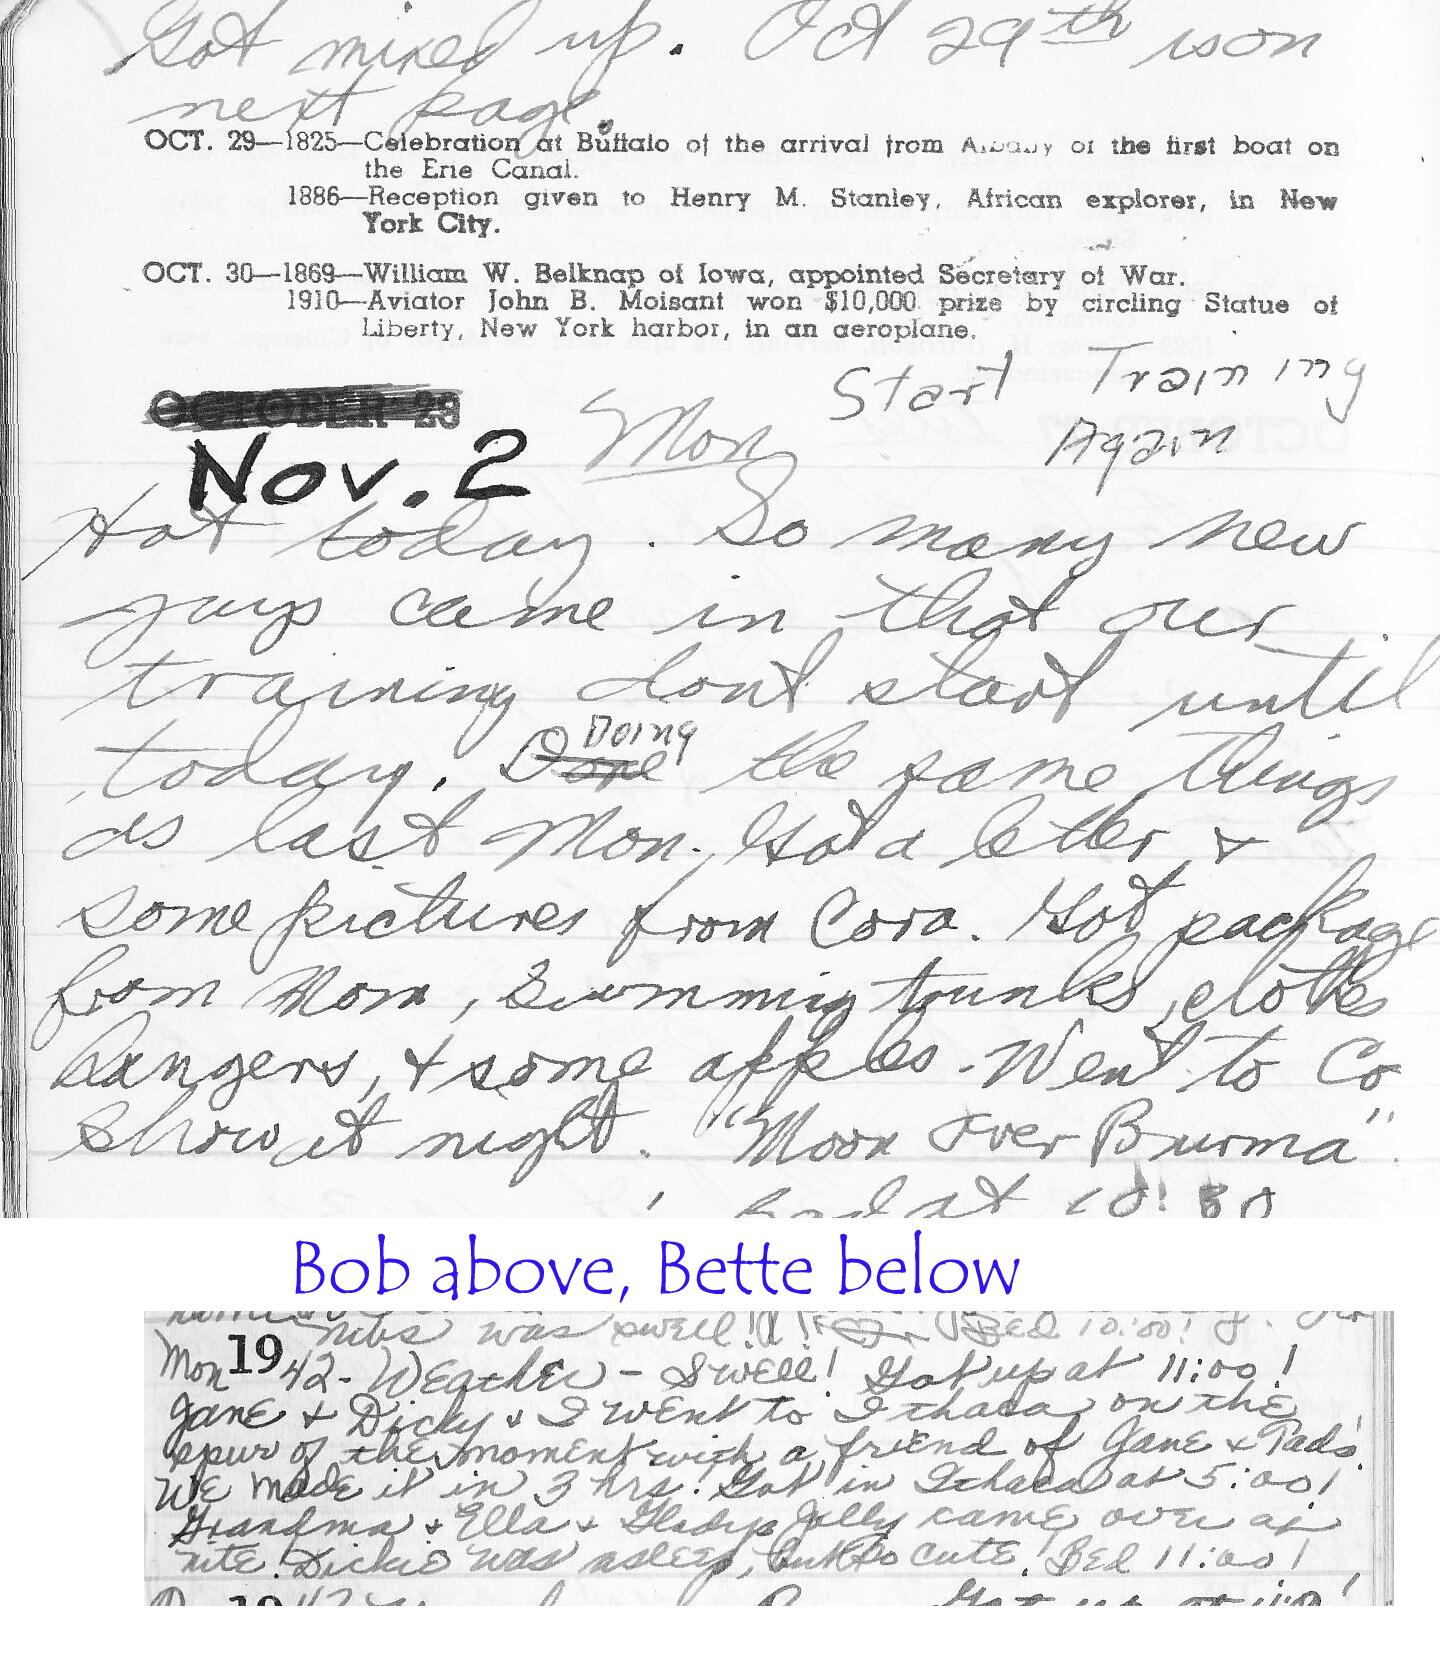 Got mixed up. Oct 29th is on
next page.
OCT. 29—1825—Celebration at Buffalo of the arrival from Albany of the first boat on
the Erie Canal.
1886—Reception given to Henry M. Stanley, African explorer, in New
York City.
OCT. 30—1869—William W. Belknap of Iowa, appointed Secretary of War.
1910—Aviator John B. Moisant won $10,000 prize by circling Statue of
Liberty, New York harbor, in an aeroplane.
Start Training
Again
OCTOBER 29
Nov. 2 Mon
Hot today. So many new
guys came in that our
training dont start until
today. Done Doing the same things
as last Mon. Got a letter &
some pictures from Cora. Got package
from Mom, Swimming trunks, clothes
hangers, & some apples. Went to Co
show at night. "Moon Over Burma".
Bed at 10:30
Bob above, Bette below
was swell!! Bed 10:00!
Mon 1942- Weather - Swell! Got up at 11:00!
Jane & Dicky & I went to Ithaca on the
spur of the moment with a friend of Jane & Tads.
We made it in 3 hrs! Got in Ithaca at 5:00!
Grandma & Ella & Gladys Jolly came over at
nite. Dickie was asleep, but so cute! Bed 11:00!